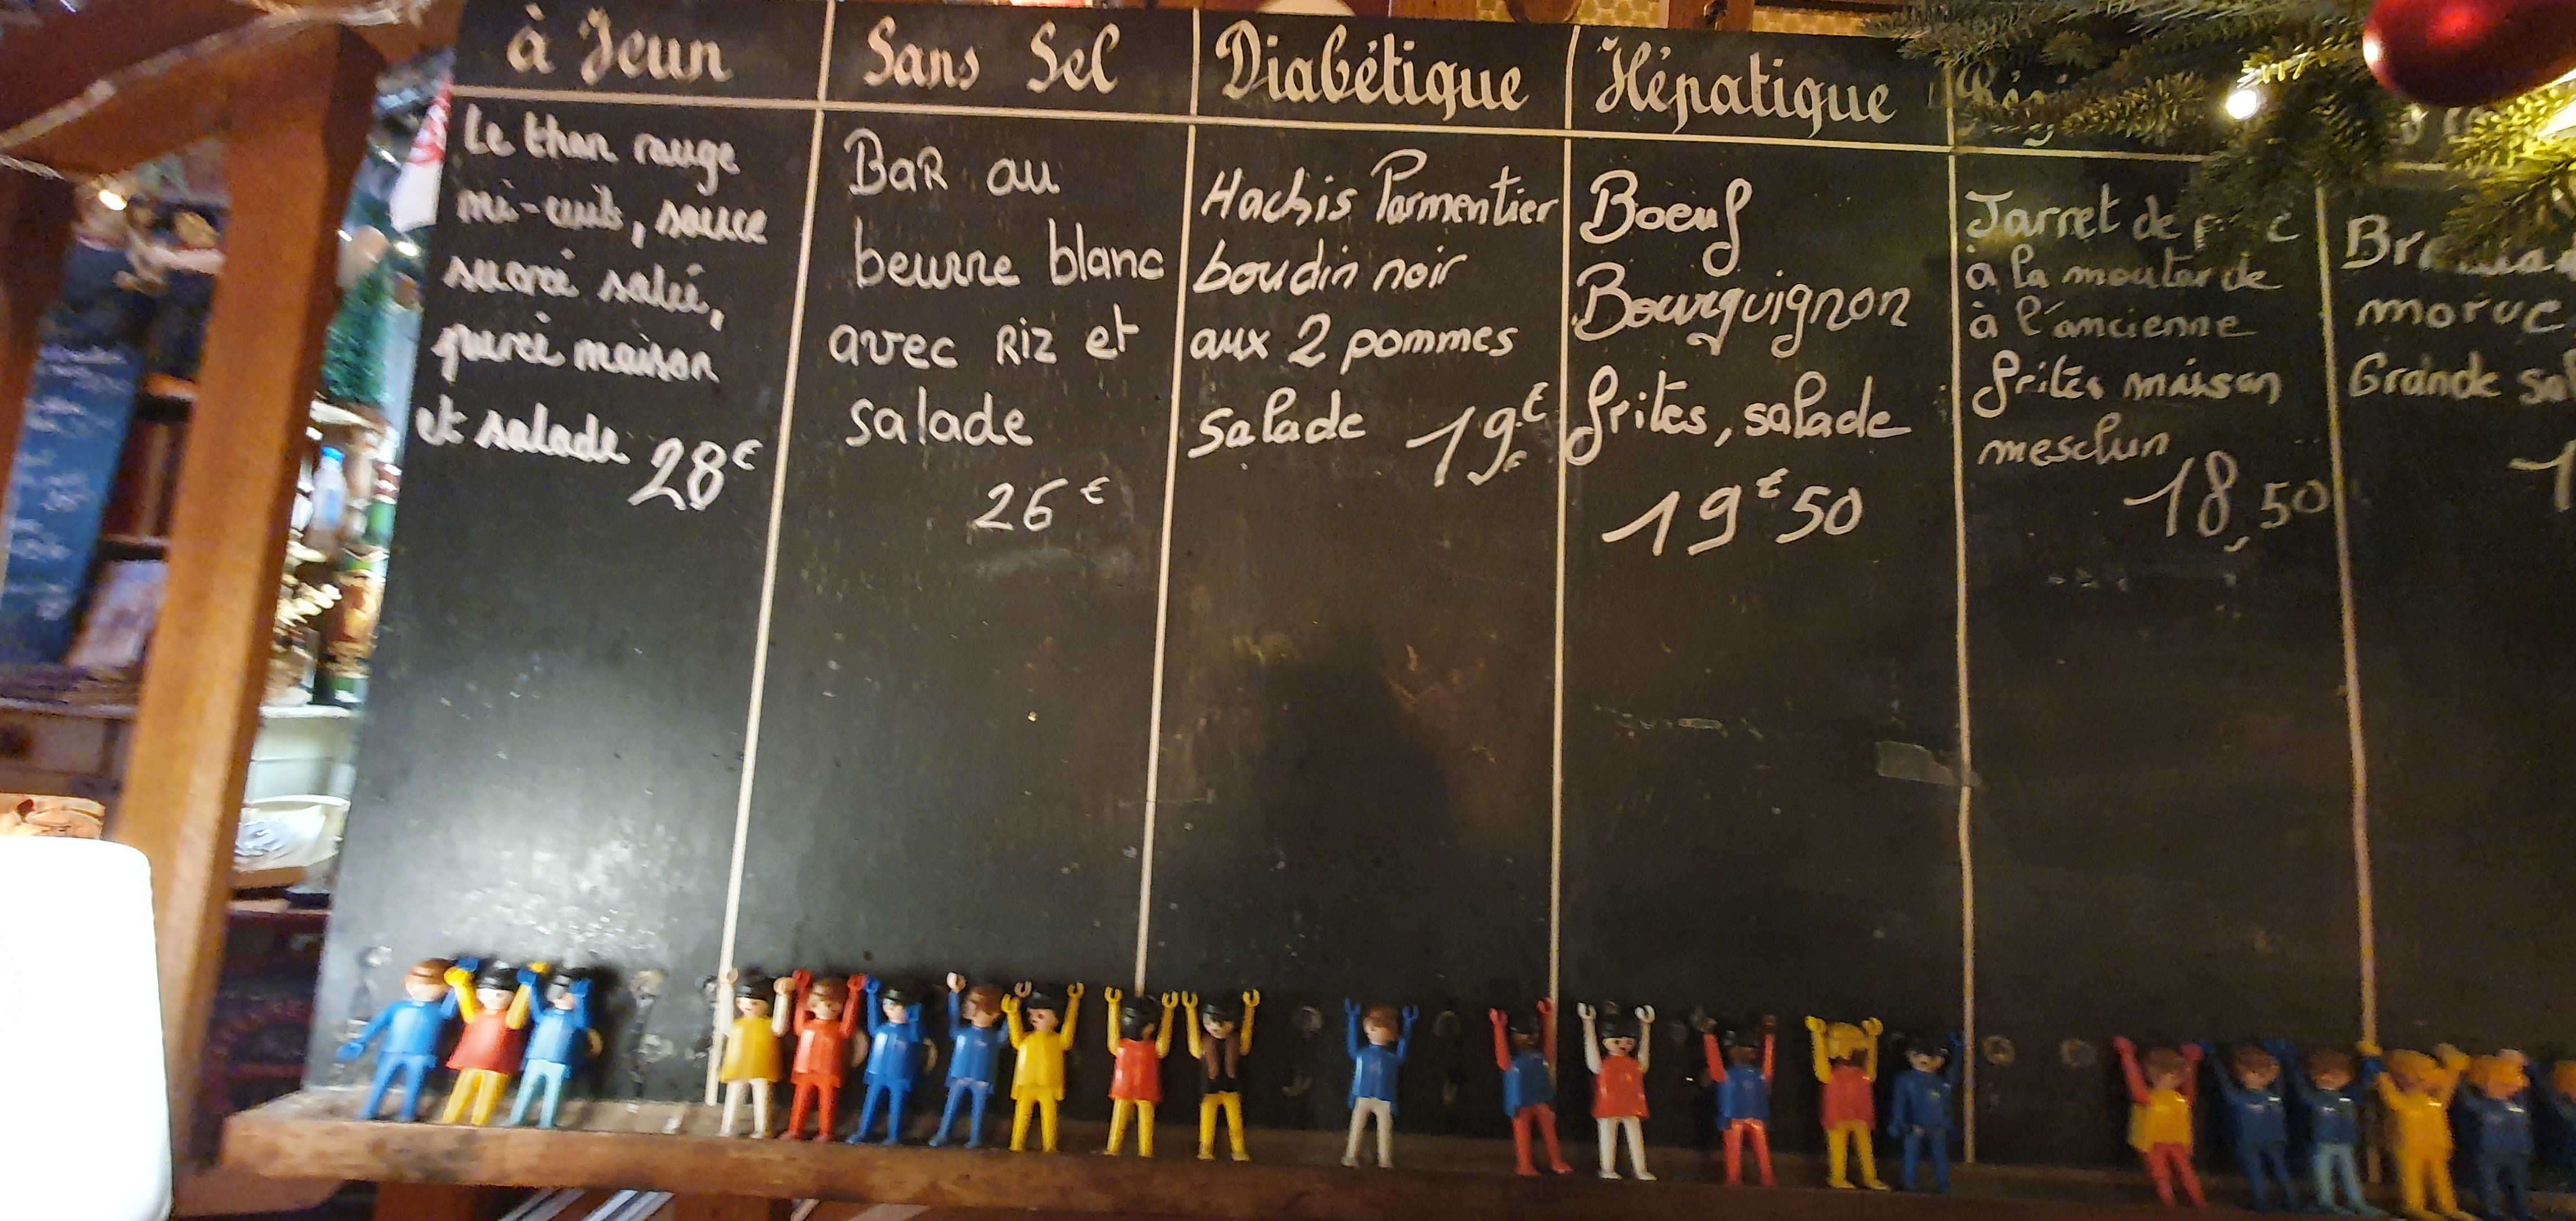 à Jeun
Le thon rouge
mi-cuit, sauce
sucré salée,
purée maison
et salade 28€
Sans Sel
BaR au
beurre blanc
avec Riz et
salade
26€
Diabétique
Hachis Parmentier
boudin noir
aux 2 pommes
Salade 19€
Hépatique
Boeuf
Bourguignon
frites, salade
19€50
Jarret de
à la moutarde
à l'ancienne
frites maison
mesclun
18,50
morue
Grande